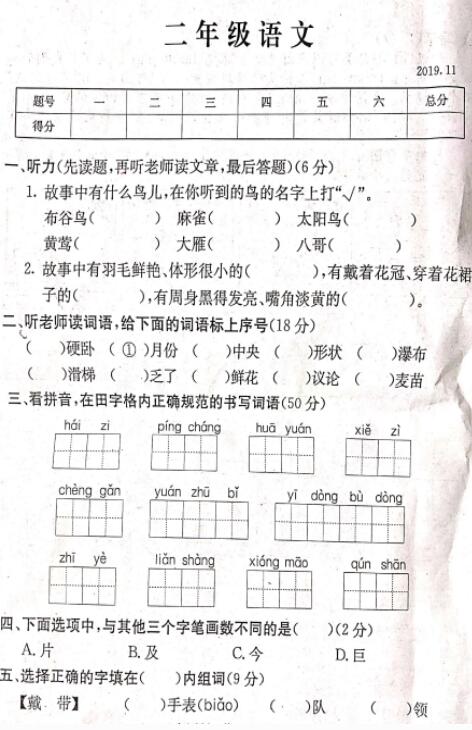 二年级语文
2019.11
题号 一 二 三 四 五 六 总分
得分
一、听力(先读题,再听老师读文章,最后答题)(6分)
1. 故事中有什么鸟儿,在你听到的鸟的名字上打“√”。
布谷鸟( ) 麻雀( ) 太阳鸟( )
黄莺( ) 大雁( ) 八哥( )
2. 故事中有羽毛鲜艳、体形很小的( ),有戴着花冠、穿着花裙
子的( ),有周身黑得发亮、嘴角淡黄的( )。
二、听老师读词语,给下面的词语标上序号(18分)
( )硬卧 (①)月份 ( )中央 ( )形状 ( )瀑布
( )滑梯 ( )乏了 ( )鲜花 ( )议论 ( )麦苗
三、看拼音,在田字格内正确规范的书写词语(50分)
hái zi píng cháng huā yuán xiě zì
chèng gǎn yuán zhū bǐ yī dòng bù dòng
zhī yè liǎn shàng xióng māo qún shān
四、下面选项中,与其他三个字笔画数不同的是( )(2分)
A. 片 B. 及 C. 今 D. 巨
五、选择正确的字填在( )内组词(9分)
【戴 带】 ( )手表(biǎo) ( )队 ( )领